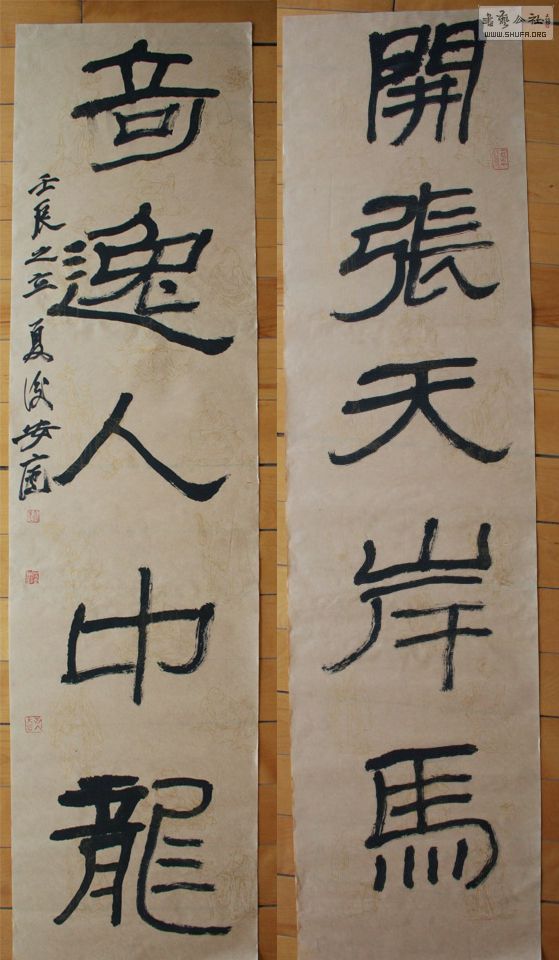 開張天岸馬
奇逸人中龍
壬辰之立夏
書藝公社
WWW.SHUFA.ORG